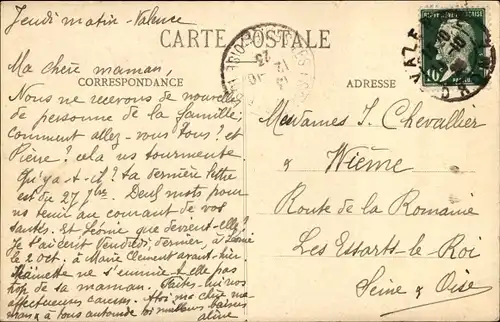 Jeudi matin - Valence
CARTE POSTALE
CORRESPONDANCE
ADRESSE
Ma chère maman,
Nous ne recevons de nouvelles
de personne de la famille;
comment allez-vous tous? et
Pierre? cela us tourmente.
Qu'y a-t-il? ta dernière lettre
est du 27 7bre. Deux mots pour
us tenir au courant de vos
santés. Et Léonie que devient-elle?
Je t'ai écrit Vendredi dernier, à
le 2 oct. à Marie Clément avant-hier.
ne s'ennuie-t-elle pas
trop de sa maman. Faites-lui nos
affectueuses caresses. A toi ma chère ma-
man & à tous autour de toi meilleurs baisers
aline
Mesdames J. Chevallier
& Wième
Route de la Romaine
Les Essarts-le-Roi
Seine & Oise